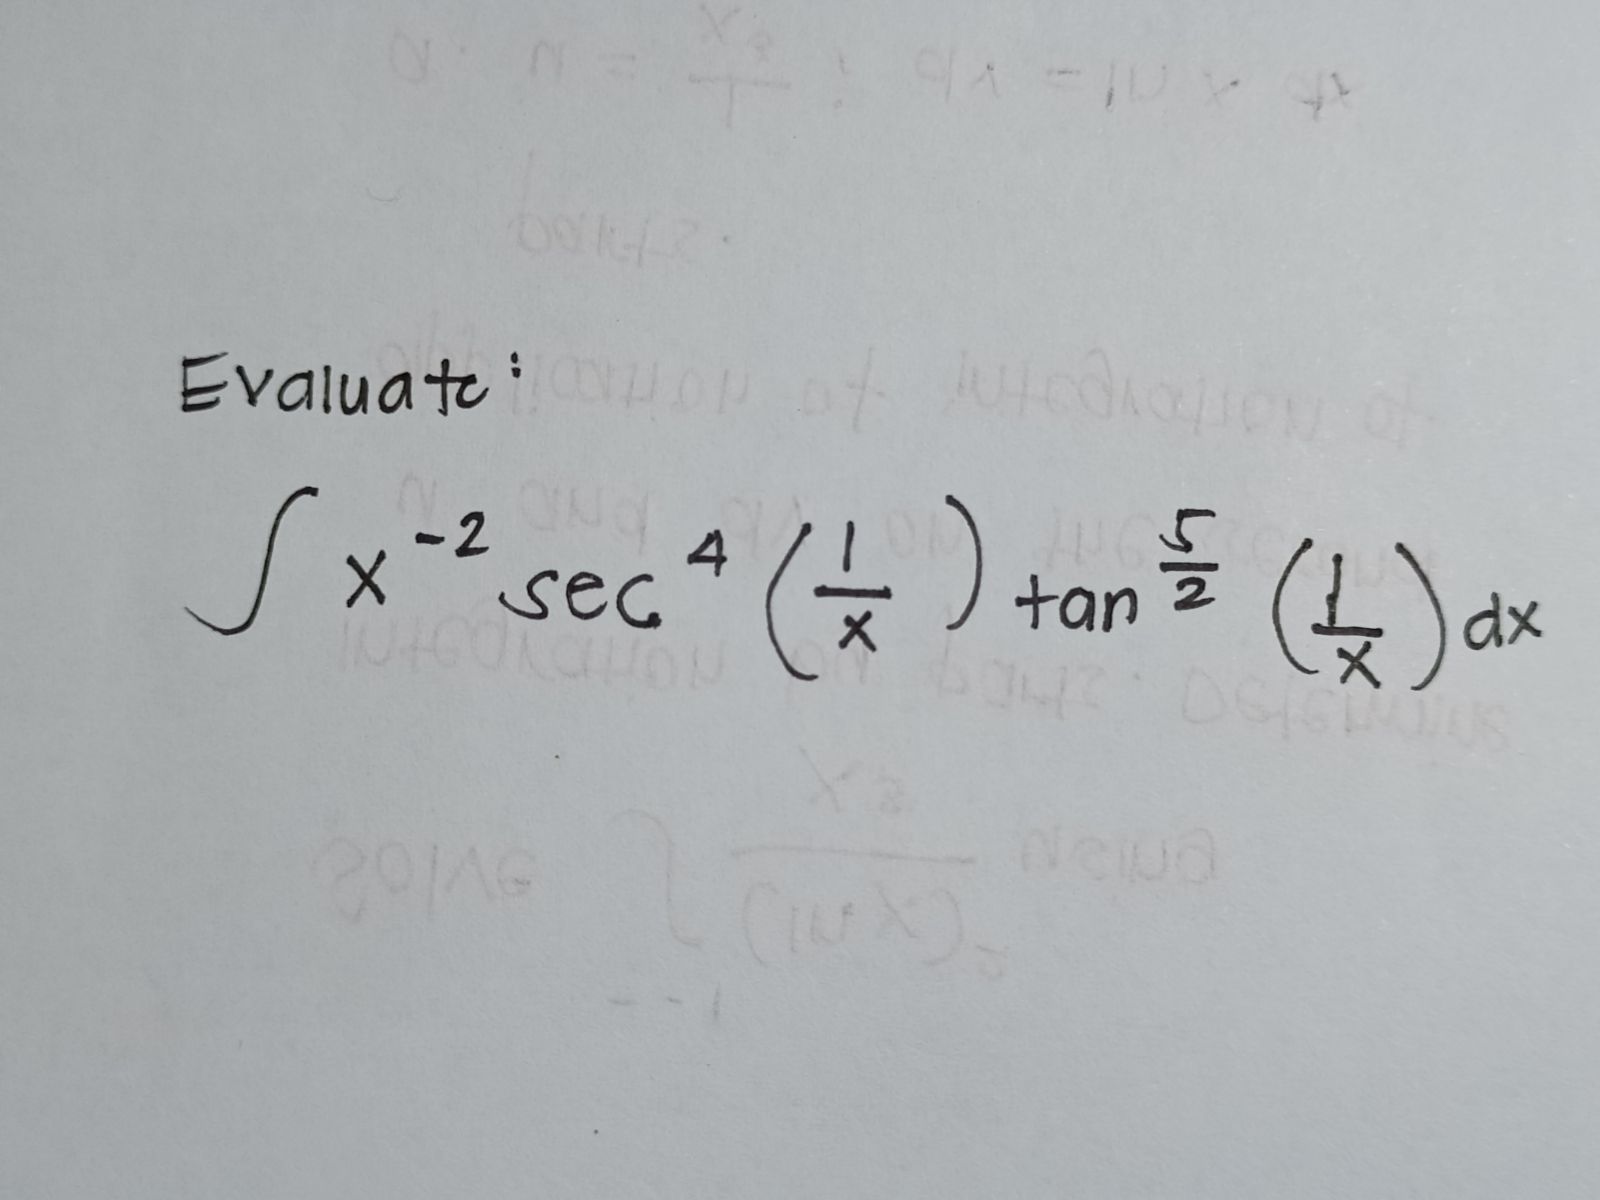 Evaluate:
∫ x^{-2} sec^{4} (1/x) tan^{5/2} (1/x) dx